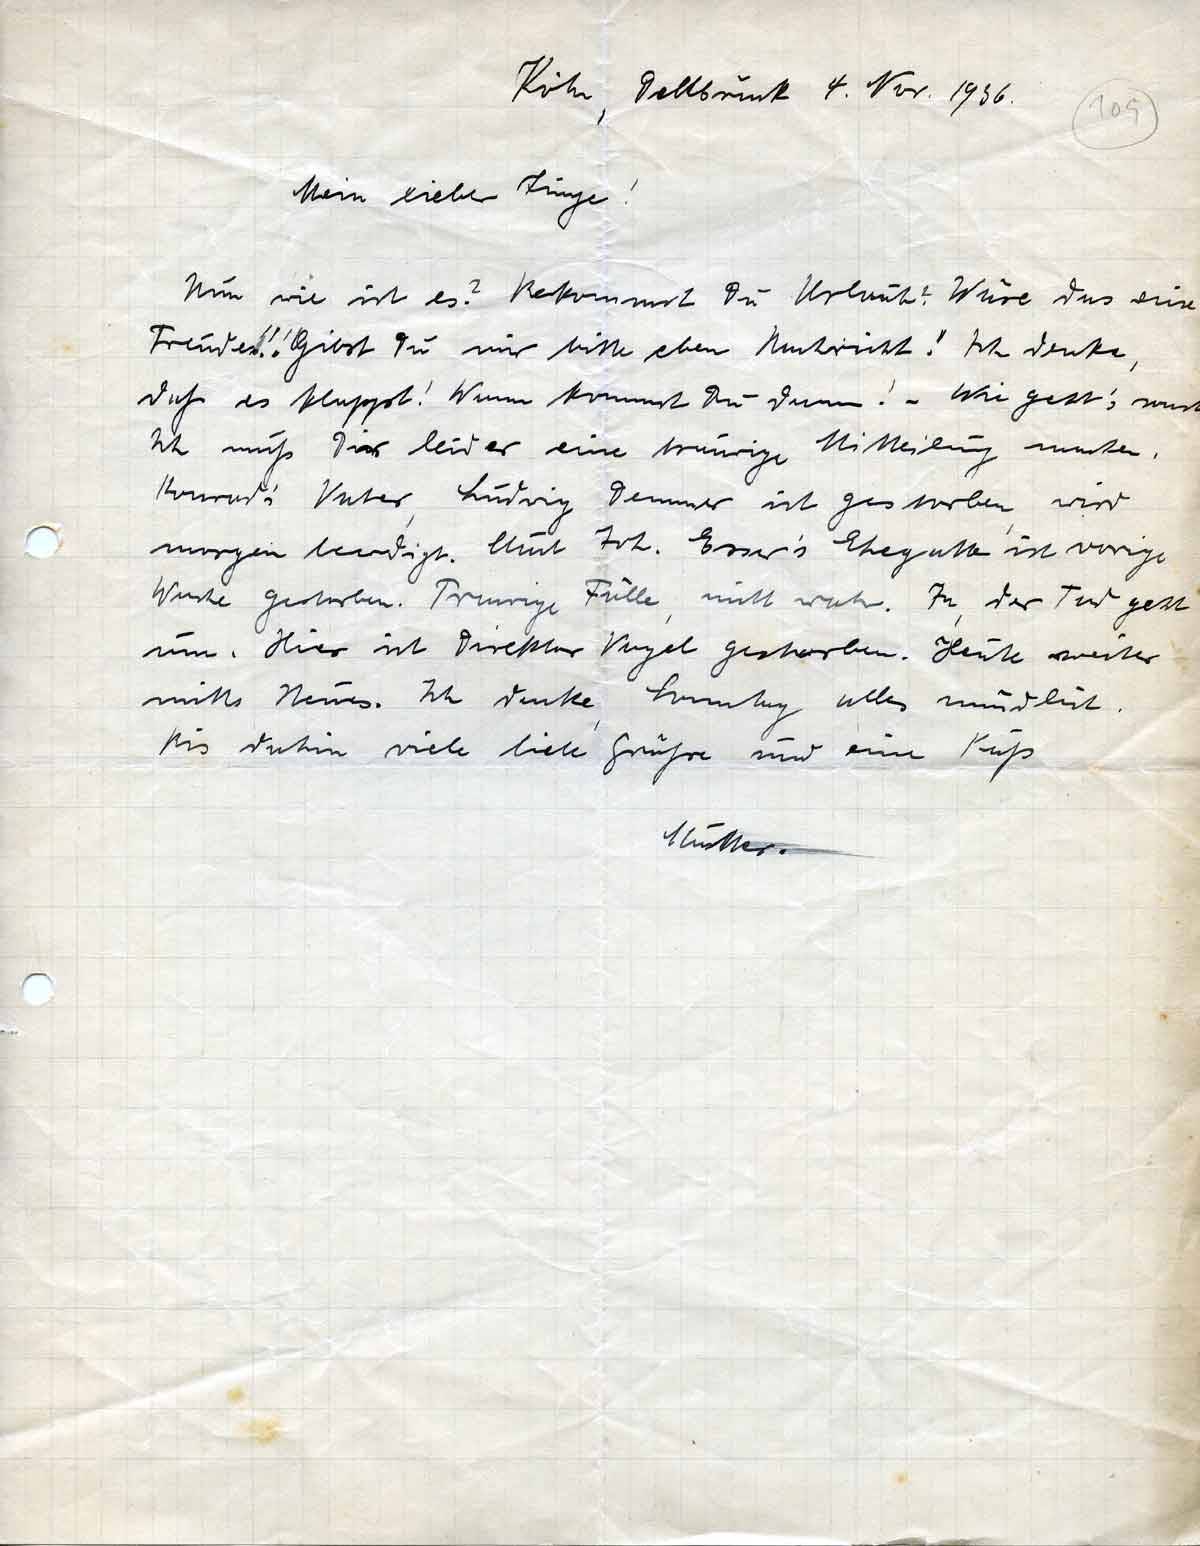 Köln, Dellbrück 4. Nov. 1936.
105
Mein lieber Junge!
Nun wie ist es? Bekommst Du Urlaub? Wäre das eine
Freude!!! Gibst Du mir bitte eben Nachricht! Ich denke,
daß es klappt! Wann kommst Du dann! – Wie geht's sonst
Ich muß Dir leider eine traurige Mitteilung machen.
Konrad's Vater, Ludwig Demmer ist gestorben, wird
morgen beerdigt. Und Joh. Esser's Ehegatte ist vorige
Woche gestorben. Traurige Fälle, nicht wahr. Ja, der Tod geht
um. Hier ist Direktor Vogel gestorben. Heute weiter
nichts Neues. Ich denke, Sonntag alles mündlich.
Bis dahin viele liebe Grüße und eine Kuß
Mutter.